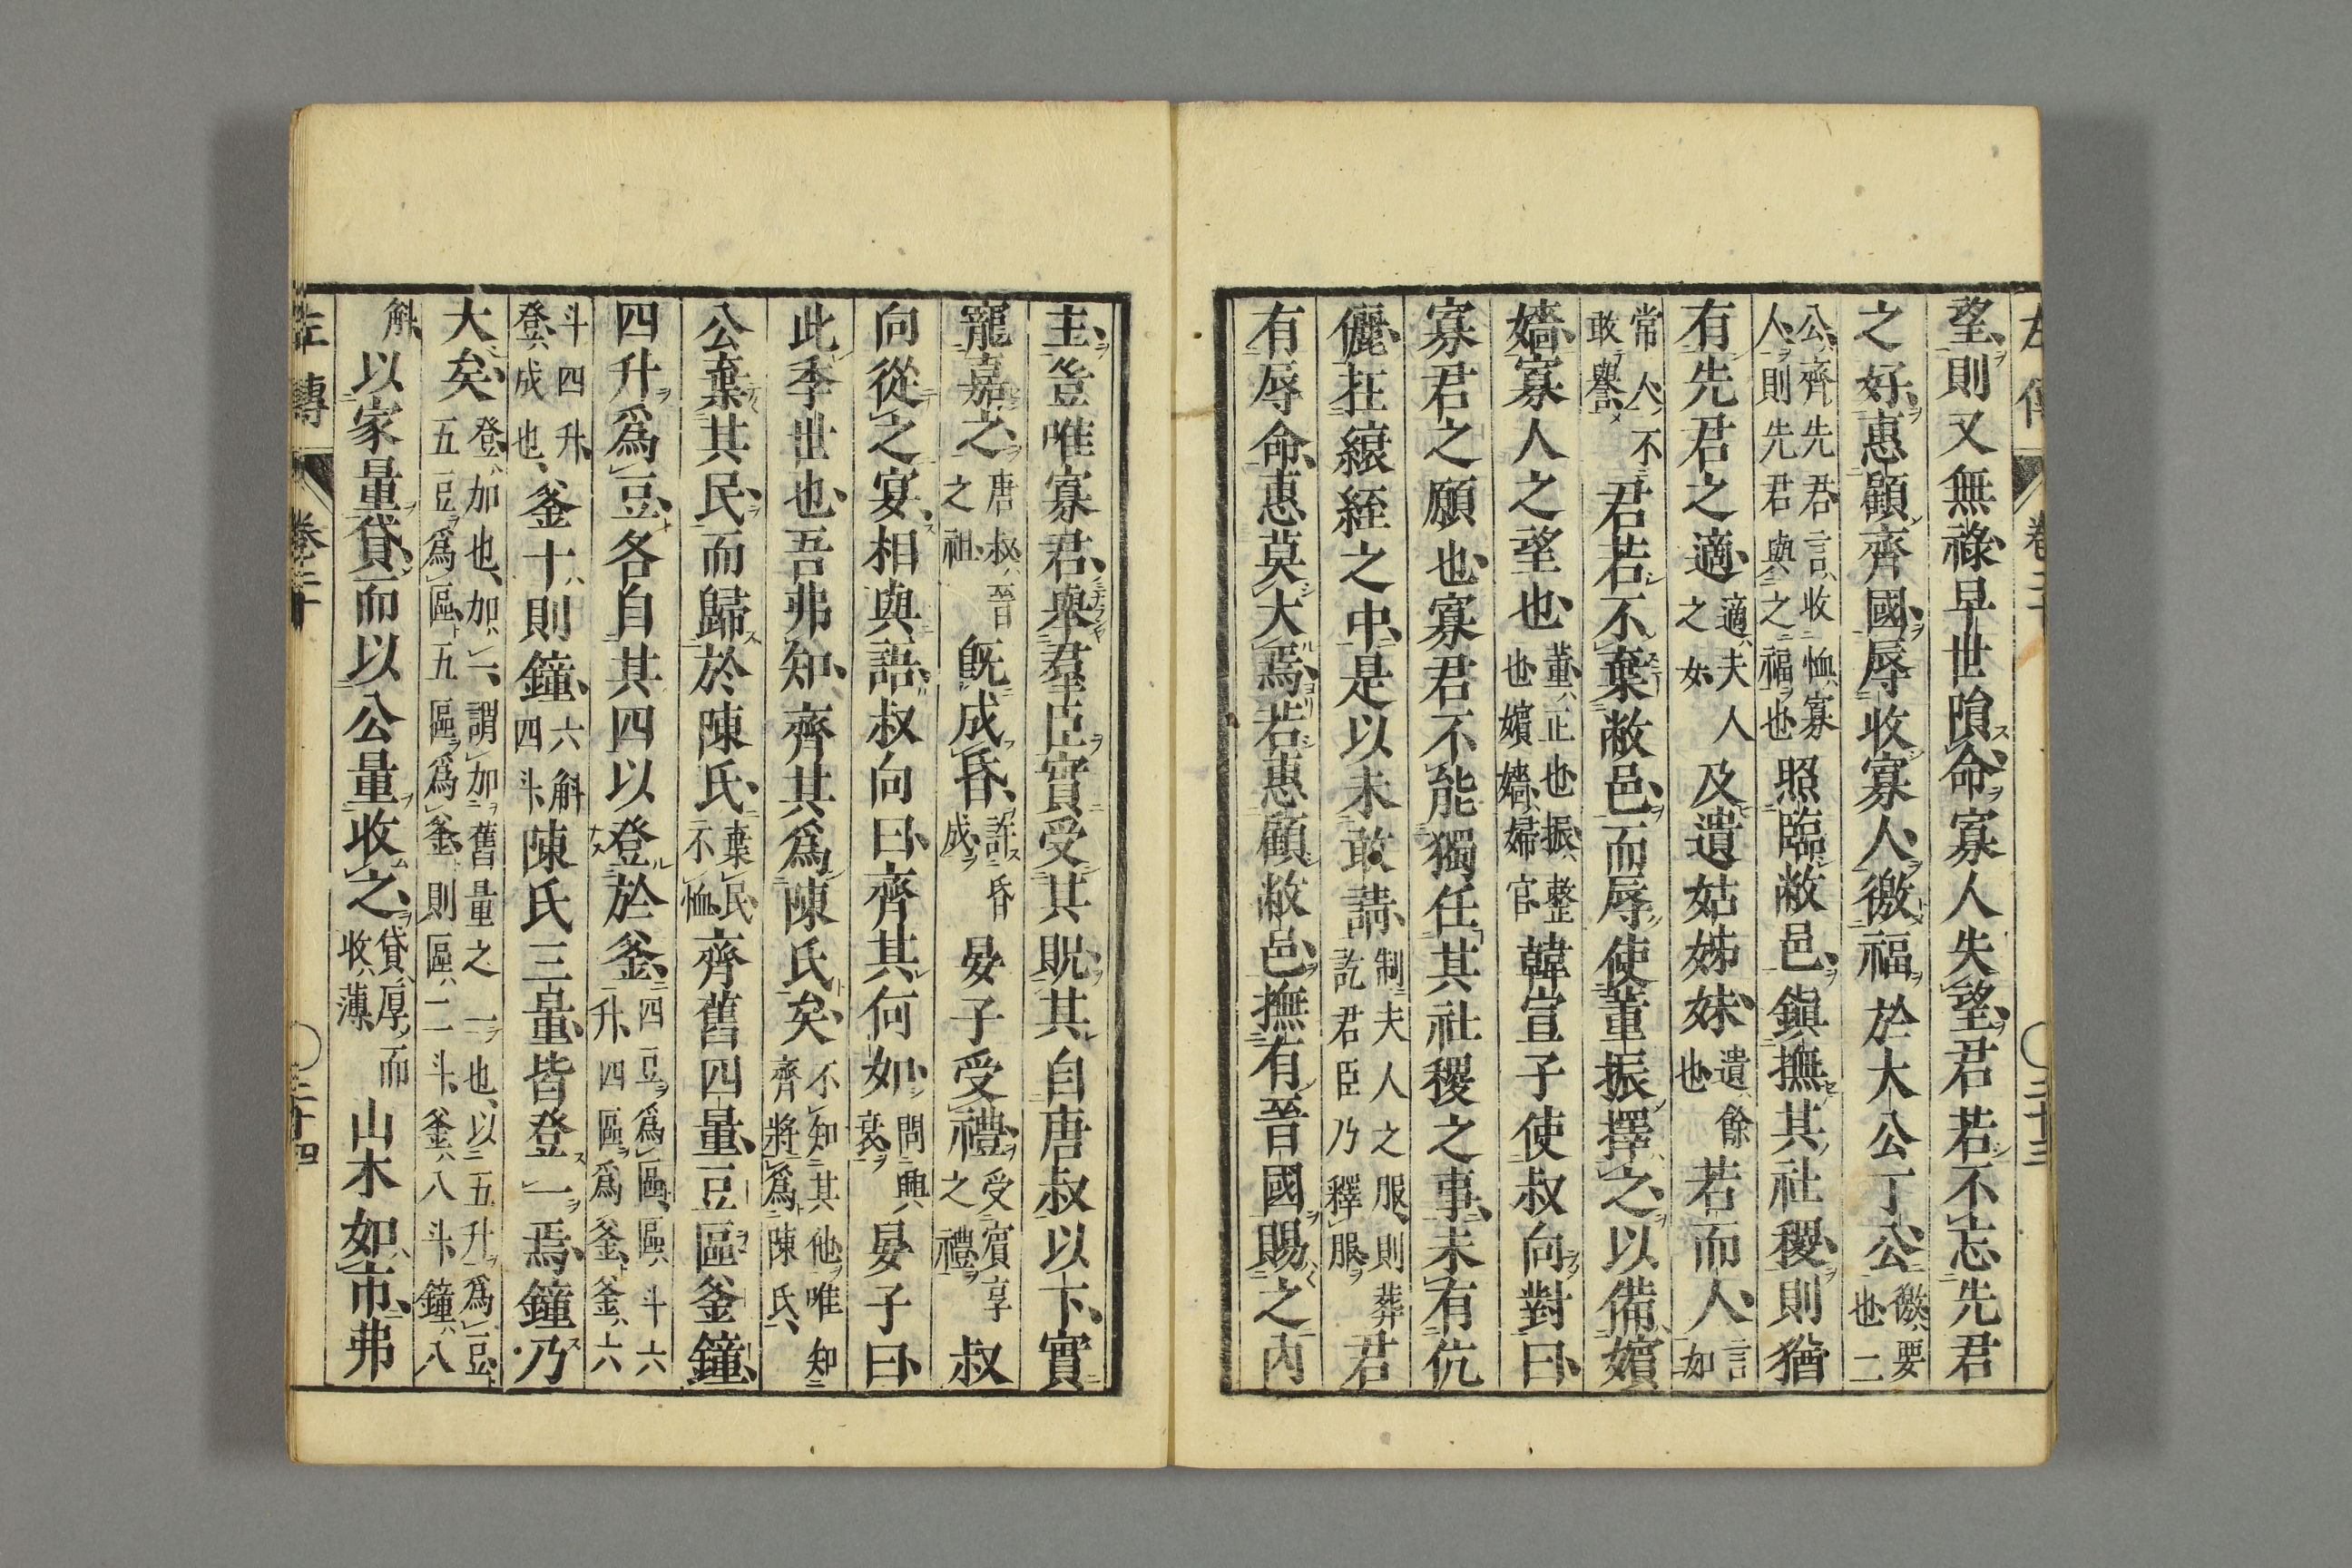 左傳 卷二十 ○ 二十三
望則又無祿早世隕命寡人失望君若不忘先君
之好惠顧齊國辱收寡人徼福於大公丁公徼要也二
公齊先君言收恤寡人則先君與之福也照臨敝邑鎭撫其社稷則猶
有先君之適適夫人之女及遺姑姊妹遺餘也若而人言如
常人不敢譽君若不棄敝邑而辱使董振擇之以備嬪
嬙寡人之望也董正也振整也嬪嬙婦官韓宣子使叔向對曰
寡君之願也寡君不能獨任其社稷之事未有伉
儷在縗絰之中是以未敢請制夫人之服則葬訖君臣乃釋服君
有辱命惠莫大焉若惠顧敝邑撫有晉國賜之內
主豈唯寡君舉羣臣實受其貺其自唐叔以下實
寵嘉之唐叔晉之祖旣成昏許昏成晏子受禮受賓享之禮叔
向從之宴相與語叔向曰齊其何如問興衰晏子曰
此季世也吾弗知齊其爲陳氏矣不知其他唯知齊將爲陳氏
公棄其民而歸於陳氏棄民不恤齊舊四量豆區釜鐘
四升爲豆各自其四以登於釜四豆爲區區斗六升四區爲釜釜六
斗四升登成也釜十則鐘六斛四斗陳氏三量皆登一焉鐘乃
大矣登加也加一謂加舊量之一也以五升爲豆五豆爲區五區爲釜則區二斗釜八斗鐘八
斛以家量貸而以公量收之貸厚而收薄山木如市弗
左傳 卷二十 ○ 二十四